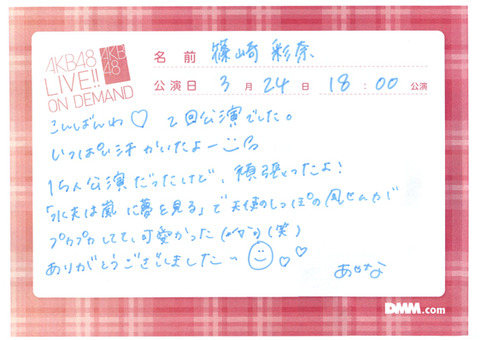 AKB48
LIVE!!
ON DEMAND
AKB
48
名前 篠崎 彩奈
公演日 3 月 24 日 18:00 公演
こんばんわ♡ 2回公演でした。
いっぱい汗かいたよー
15人公演だったけど、頑張ったよ!
「水夫は嵐に夢を見る」で天使のしっぽの風せんが
プカプカしてて、可愛かった (笑)
ありがとうございました
あやな
DMM.com